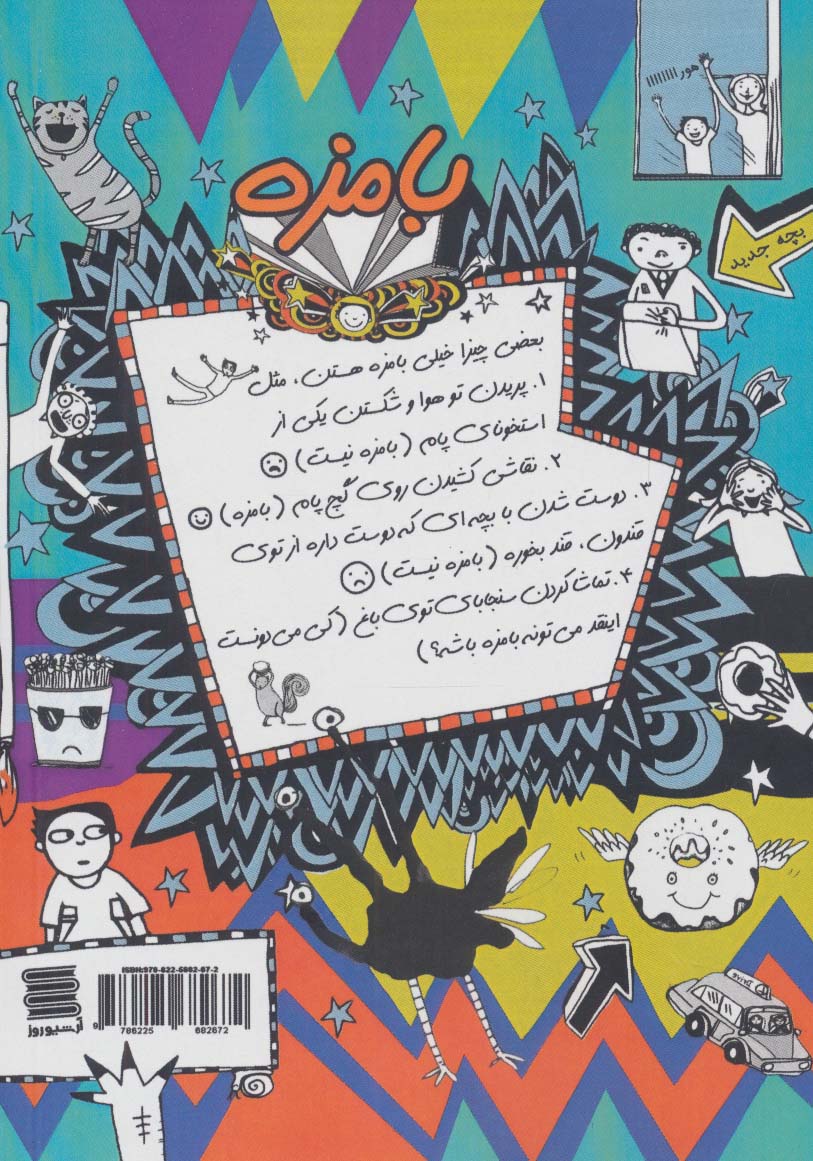 هوراااااااا
بامزه
بچه جدید
بعضی چیزا خیلی بامزه هستن، مثل
۱. پریدن تو هوا و شکستن یکی از
استخونای پام (بامزه نیست)
۲. نقاشی کشیدن روی گچ پام (بامزه)
۳. دوست شدن با بچه‌ای که دوست داره از توی
قندون، قند بخوره (بامزه نیست)
۴. تماشا کردن سنجابای توی باغ (کی می‌دونست
اینقد می‌تونه بامزه باشه؟)
ISBN:978-622-5682-67-2
9 786225 682672